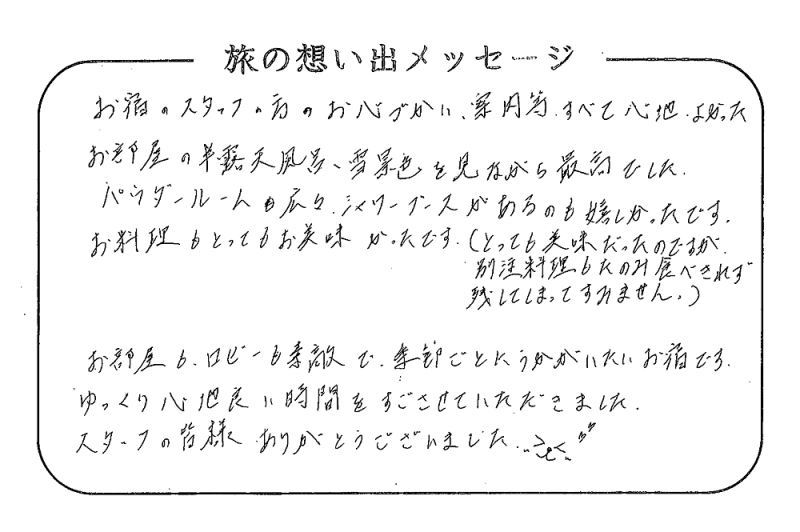 旅の想い出メッセージ
お宿のスタッフの方のお心づかい、案内等、すべて心地よかった
お部屋の半露天風呂、雪景色を見ながら最高でした。
パウダールームも広々、シャワーブースがあるのも嬉しかったです。
お料理もとってもお美味かったです。(とっても美味だったのですが、
別注料理もたのみ食べきれず
残してしまってすみません。)
お部屋も、ロビーも素敵で、季節ごとにうかがいたいお宿です。
ゆっくり心地良い時間をすごさせていただきました。
スタッフの皆様ありがとうございました。